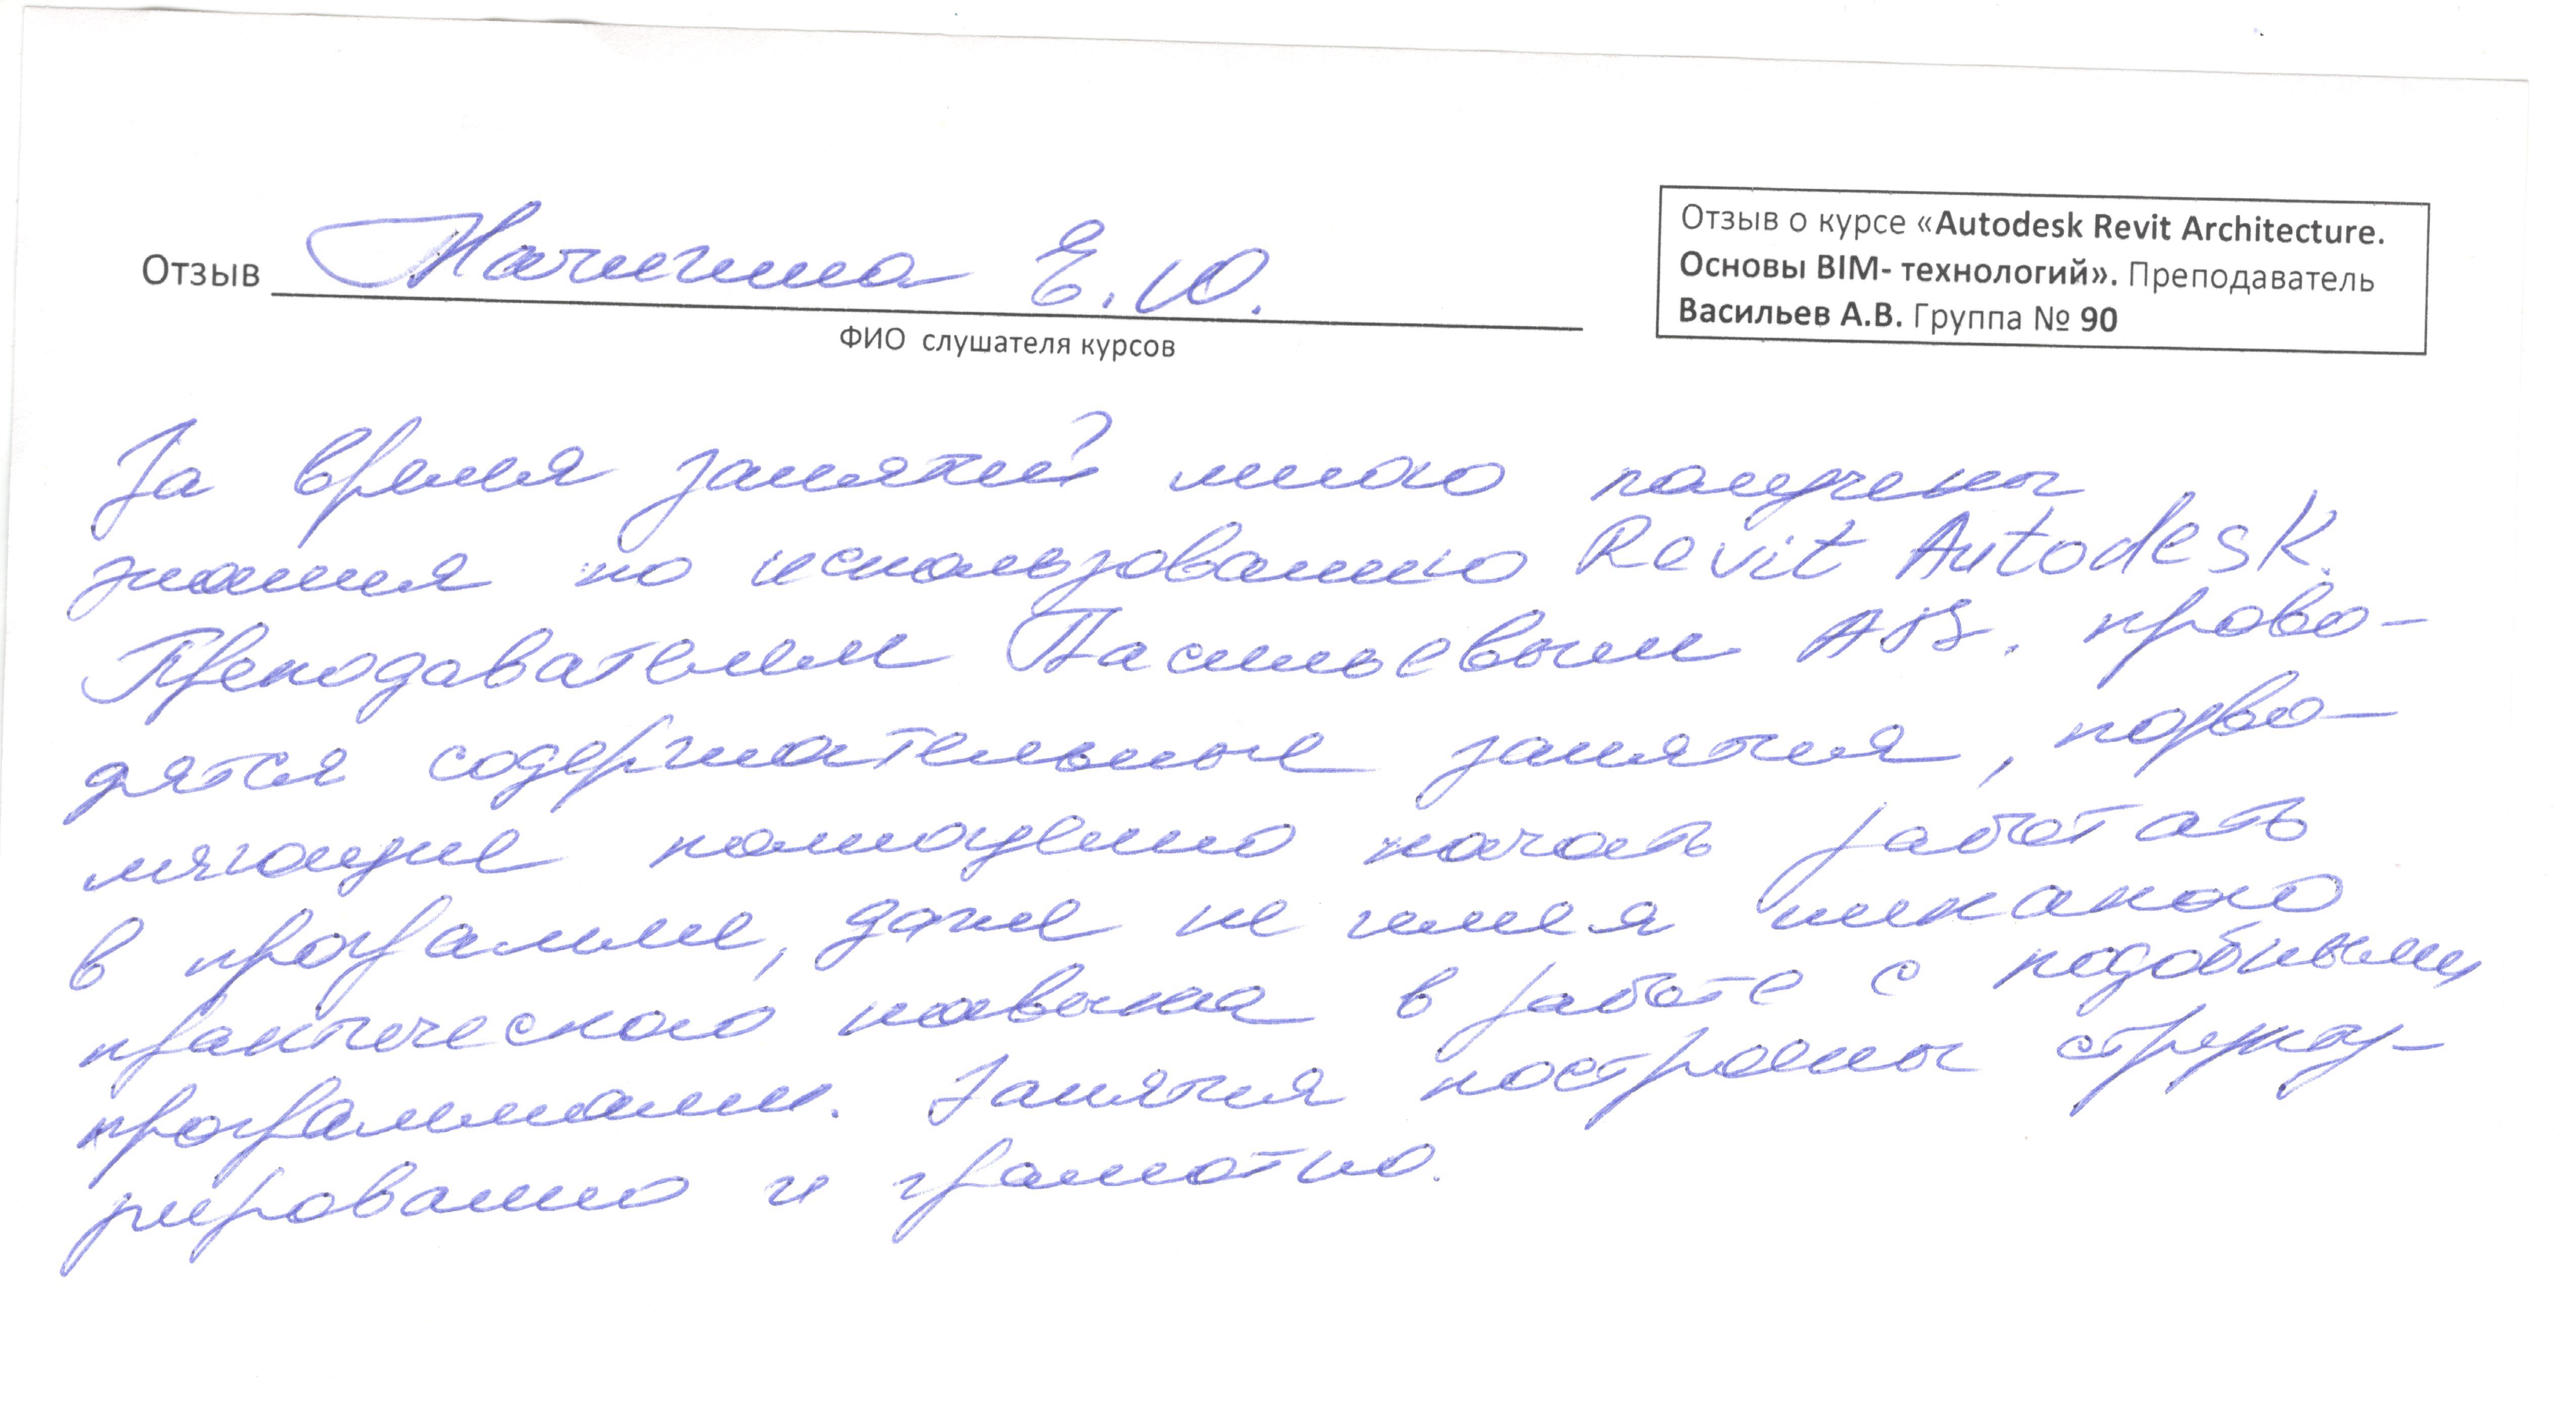 Отзыв Начигина Е.Ю.
ФИО слушателя курсов
Отзыв о курсе «Autodesk Revit Architecture.
Основы BIM- технологий». Преподаватель
Васильев А.В. Группа № 90
За время занятий много получены
знания по использованию Revit Autodesk.
Преподавателем Васильевым А.В. прово-
дятся содержательные занятия, позво-
ляющие полноценно начать работать
в программе, даже не имея никакого
практического навыка в работе с подобными
программами. Занятия построены структу-
рировано и грамотно.